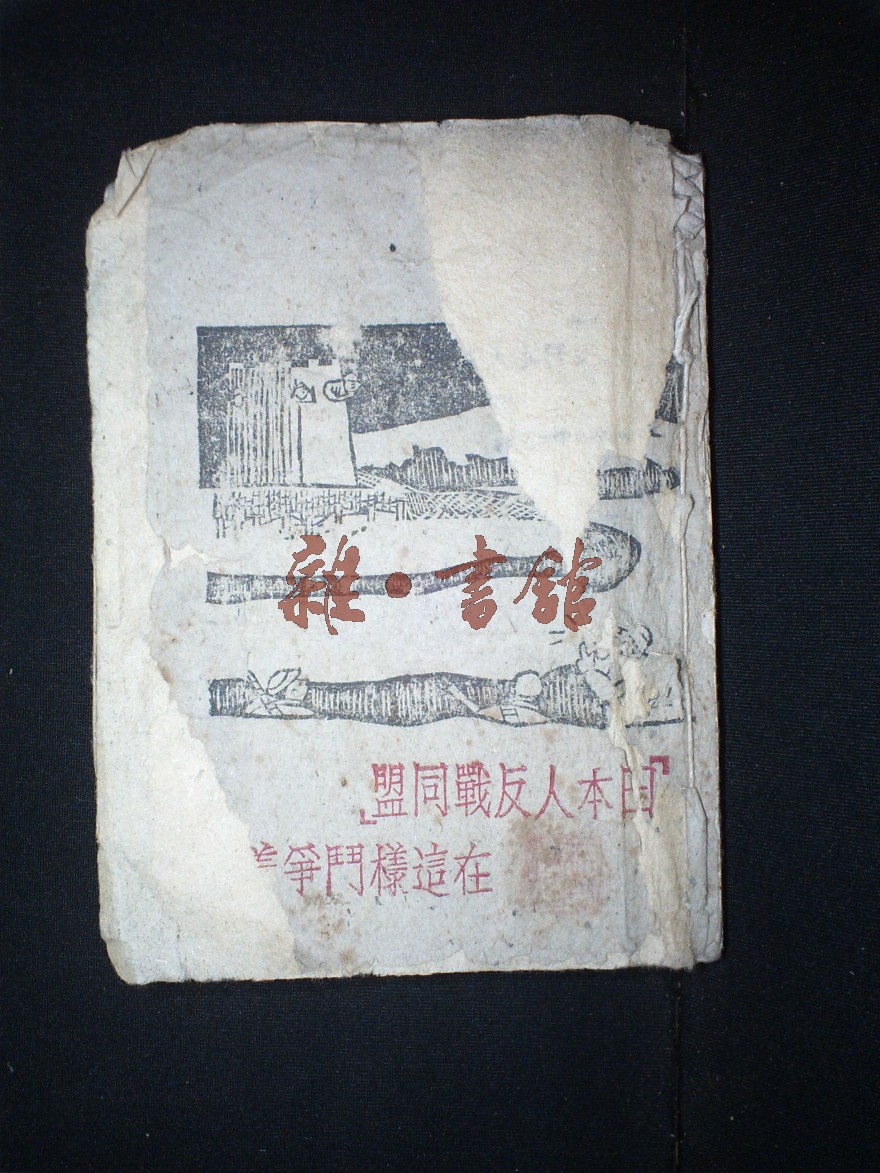 雜·書館
「日本人反戰同盟」
在這樣鬥爭着